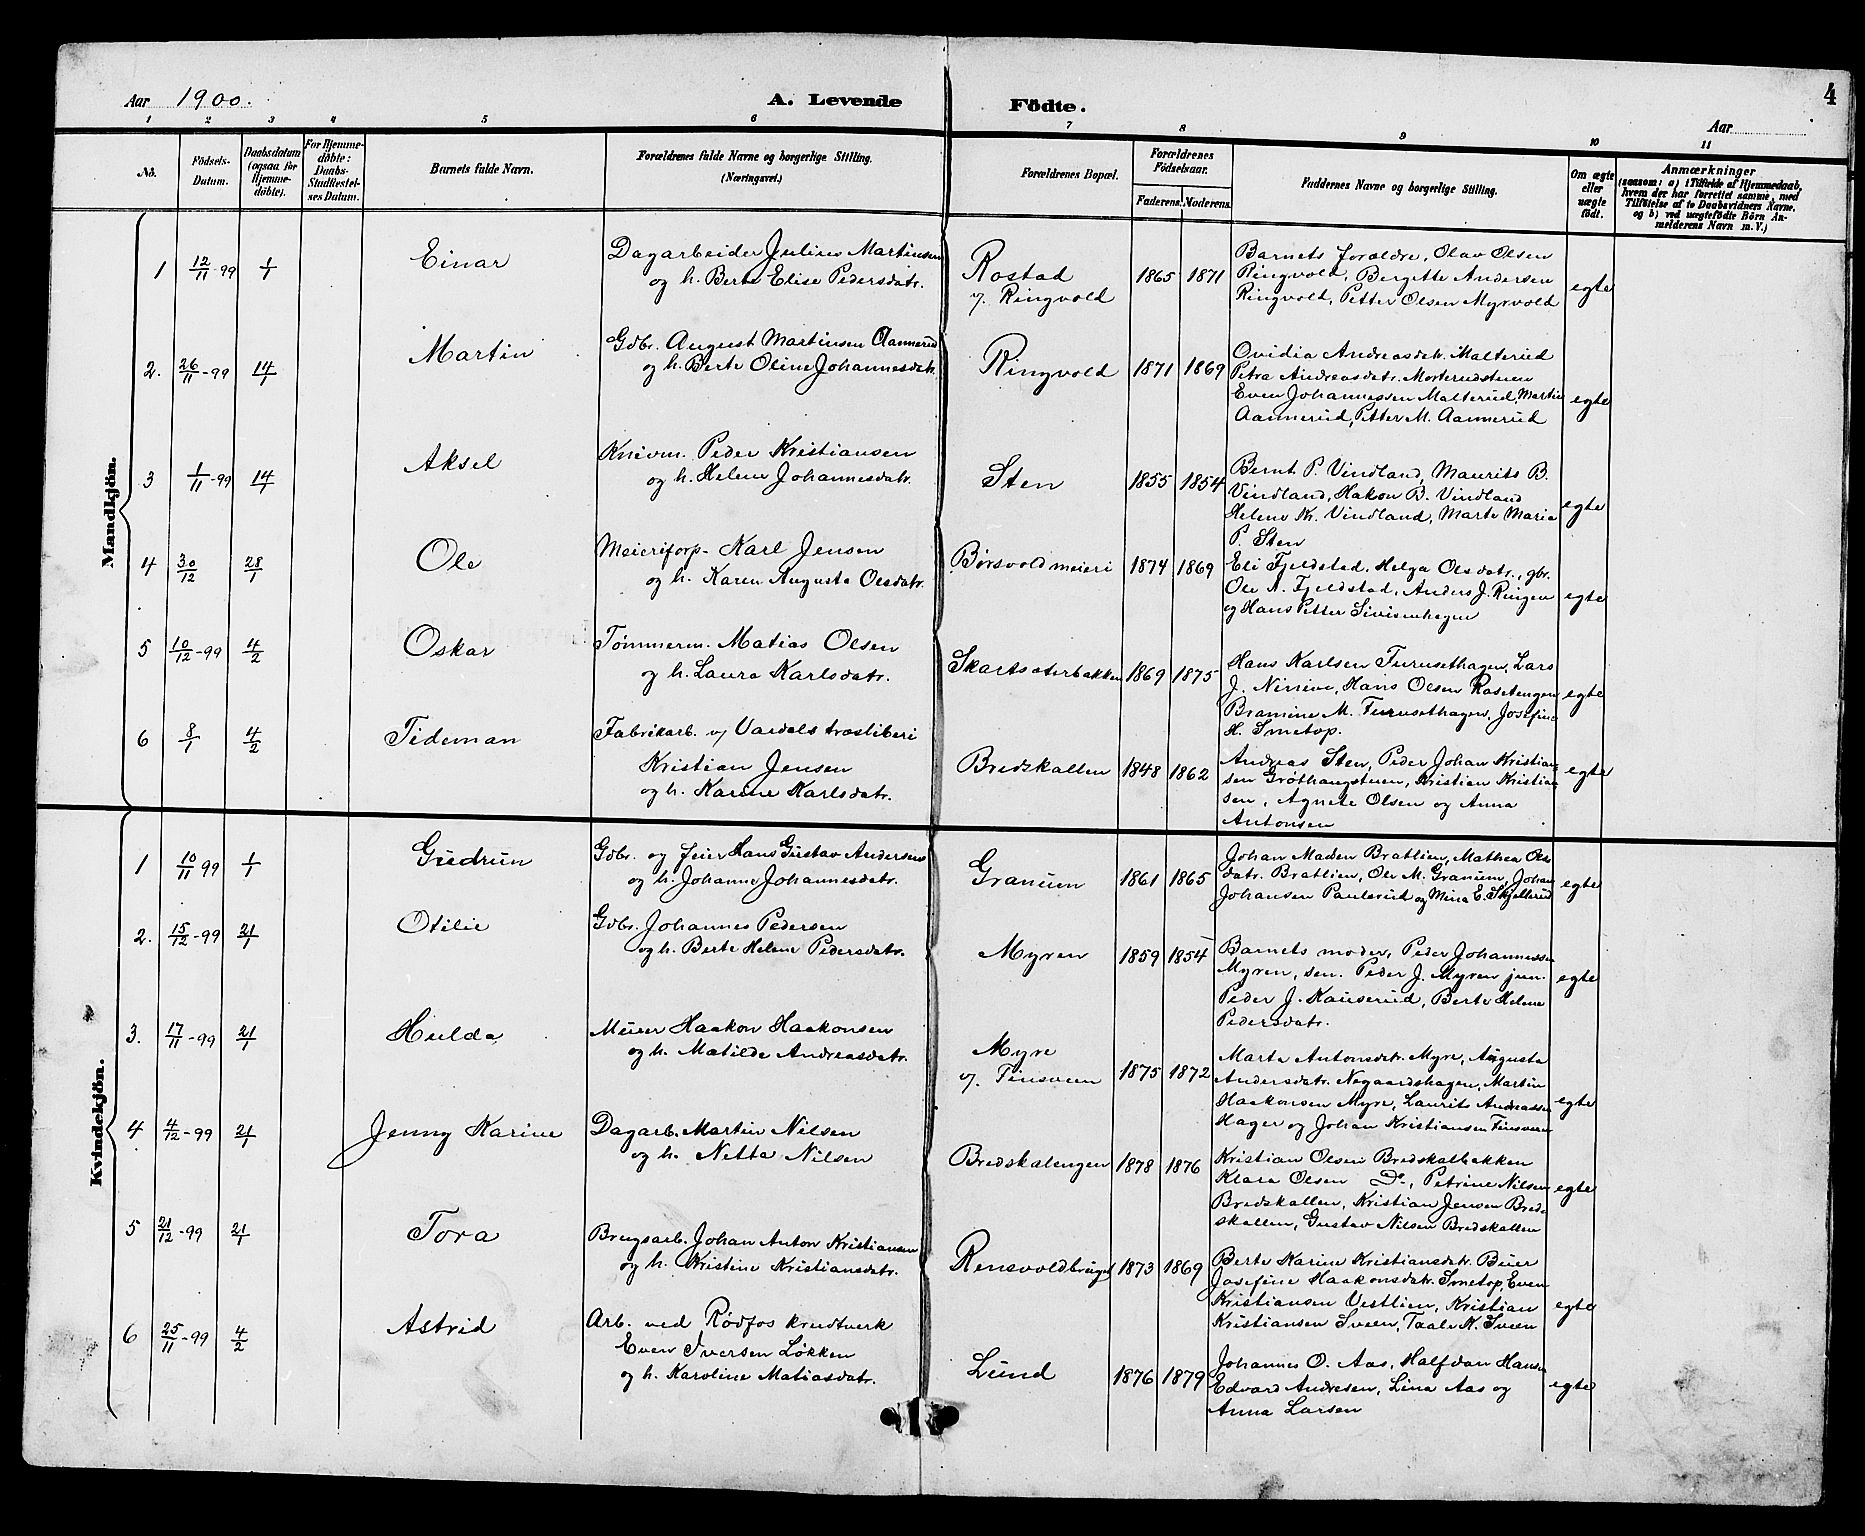 Aar 1900.
A. Levende Födte.
4
Aar
1 2 3 4 5 6 7 8 9 10 11
No.
Födsels-Datum.
Daabsdatum (ogsaa for Hjemmedöbte).
For Hjemmedöbte: Daabs-Stadfæstelses Datum.
Barnets fulde Navn.
Forældrenes fulde Navne og borgerlige Stilling.
(Næringsvei.)
Forældrenes Bopæl.
Forældrenes Födselsaar.
Faderens. Moderens.
Faddernes Navne og borgerlige Stilling.
Om ægte eller uægte födt.
Anmærkninger
(saasom: a) i Tilfælde af Hjemmedaab, hvem der har forrettet samme, med Tilföielse af to Daabsvidners Navne, og b) ved uægtefödte Börn Anmelderens Navn m. V.)
Mandkjön.
1 12/11-99 1/1 Einar
Dagarbeider Julius Martinsen
og h. Berte Elise Pedersdatr.
Rostad
v. Ringvold
1865 1871
Barnets forældre, Olav Olsen
Ringvold, Bergitte Andersen
Ringvold, Petter Olsen Myrvold
egte
2. 26/11-99 14/1 Martin
Gdbr. August Martinsen Aannerud
og h. Berte Oline Johannesdatr.
Ringvold
1871 1869
Ovidia Andreasdatr. Malterud
Petra Andreasdatr. Morterudstuen
Even Johannessen Malterud, Martin
Aannerud, Petter M. Aannerud
egte
3 1/11-99 14/1 Aksel
Knivm. Peder Kristiansen
og h. Helene Johannesdatr.
Sten
1855 1854
Bernt P. Vindland, Maurits B.
Vindland, Hakon B. Vindland
Helene Kr. Vindland, Marte Maria
P. Sten
egte
4 30/12 28/1 Ole
Meieriforp. Karl Jensen
og h. Karen Augusta Olsdatr.
Børsvold meieri
1874 1869
Eli Fjeldstad, Helga Olsdatr., gbr.
Ole A. Fjeldstad, Anders J. Ringen
og Hans Petter Sivisenhagen
egte
5 10/12-99 4/2 Oskar
Tømmerm. Matias Olsen
og h. Laura Karlsdatr.
Skartsæterbakken
1869 1875
Hans Karlsen Furusethagen, Lars
J. Ninive, Hans Olsen Rasetengen
Bramine M. Furusethagen, Josefine
H. Smetop.
egte
6 8/1 4/2 Tideman
Fabrikarb. v/ Vardals træsliberi
Kristian Jensen
og h. Karine Karlsdatr.
Bredskallen
1848 1862
Andreas Sten, Peder Johan Kristian-
sen Grøthaugstuen, Kristian Kristian-
sen, Agnete Olsen og Anna
Antonsen
egte
Kvindekjön.
1 10/11 99 1/1 Gudrun
Gdbr. og feier Hans Gustav Andersen
og h. Johanne Johannesdatr.
Granum
1861 1865
Johan Madsen Bratlien, Mathea Ols-
datr. Bratlien, Ole M. Granum, Johan
Johansen Paulsrud og Mina E. Skjellerud
egte
2. 15/12-99 21/1 Otilie
Gdbr. Johannes Pedersen
og h. Berte Helene Pedersdatr.
Myren
1859 1854
Barnets moder, Peder Johannessen
Myren, sen. Peder J. Myren jun.
Peder J. Kauserud, Berte Helene
Pedersdatr.
egte
3. 17/11-99 21/1 Hulda
Murer Haakon Haakonsen
og h. Matilde Andreasdatr.
Myre
v. Finsveen
1875 1872
Marte Antonsdatr. Myre, Augusta
Andersdatr. Nøgaardshagen, Martin
Haakonsen Myre, Laurits Andreassen
Hager og Johan Kristiansen Finsveen
egte
4 4/12-99 21/1 Jenny Karine
Dagarb. Martin Nilsen
og h. Netta Nilsen
Bredskalengen
1878 1876
Kristian Olsen Bredskalbakken
Klara Olsen Do, Petrine Nilsen
Bredskallen, Kristian Jensen Bred-
skallen, Gustav Nilsen Bredskallen
egte
5 21/12-99 21/1 Tora
Brugsarb. Johan Anton Kristiansen
og h. Kristine Kristiansdatr.
Rensvoldbruget
1873 1869
Berte Karine Kristiansdatr. Buer
Josefine Haakonsdatr. Smetop, Even
Kristiansen Vestlien, Kristian
Kristiansen Sveen, Taale K. Sveen
egte
6 25/11-99 4/2 Astrid
Arb. ved Rødfos krudtverk
Even Iversen Løkken
og h. Karoline Matiasdatr.
Lund
1876 1879
Johannes O. Aas, Halfdan Hansen
Edvard Andresen, Lina Aas og
Anna Larsen
egte